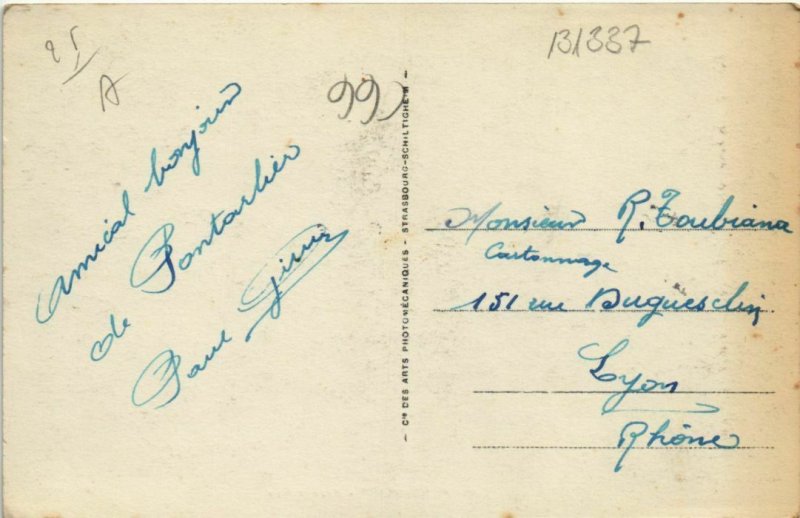 A
99
B1337
Amical bonjour
de Pontarlier
Paul
Cie DES ARTS PHOTOMÉCANIQUES - STRASBOURG-SCHILTIGHEIM
Monsieur R. Toubiana
Cartonnage
151 rue Duguesclin
Lyon
Rhône